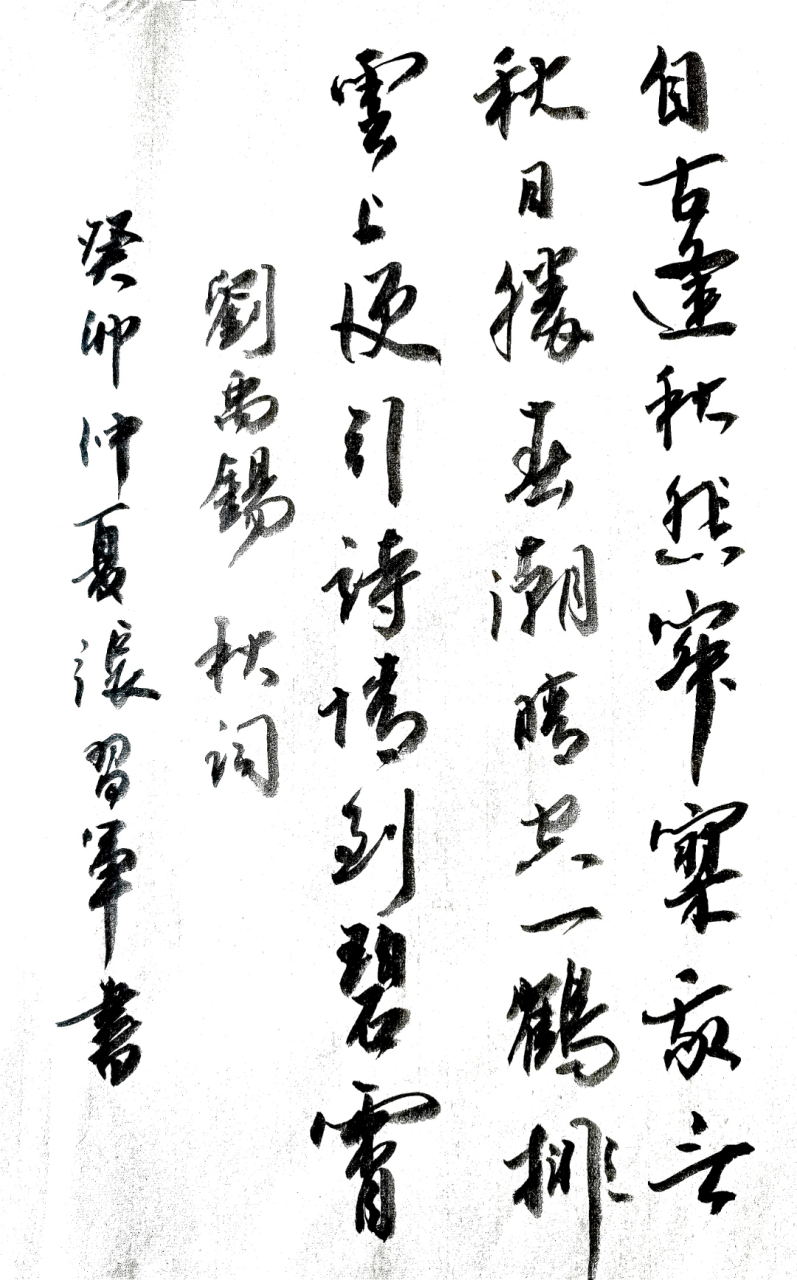 自古逢秋悲寂寥我言
秋日勝春潮晴空一鶴排
雲上便引詩情到碧霄
劉禹錫 秋詞
癸卯仲夏張習軍書